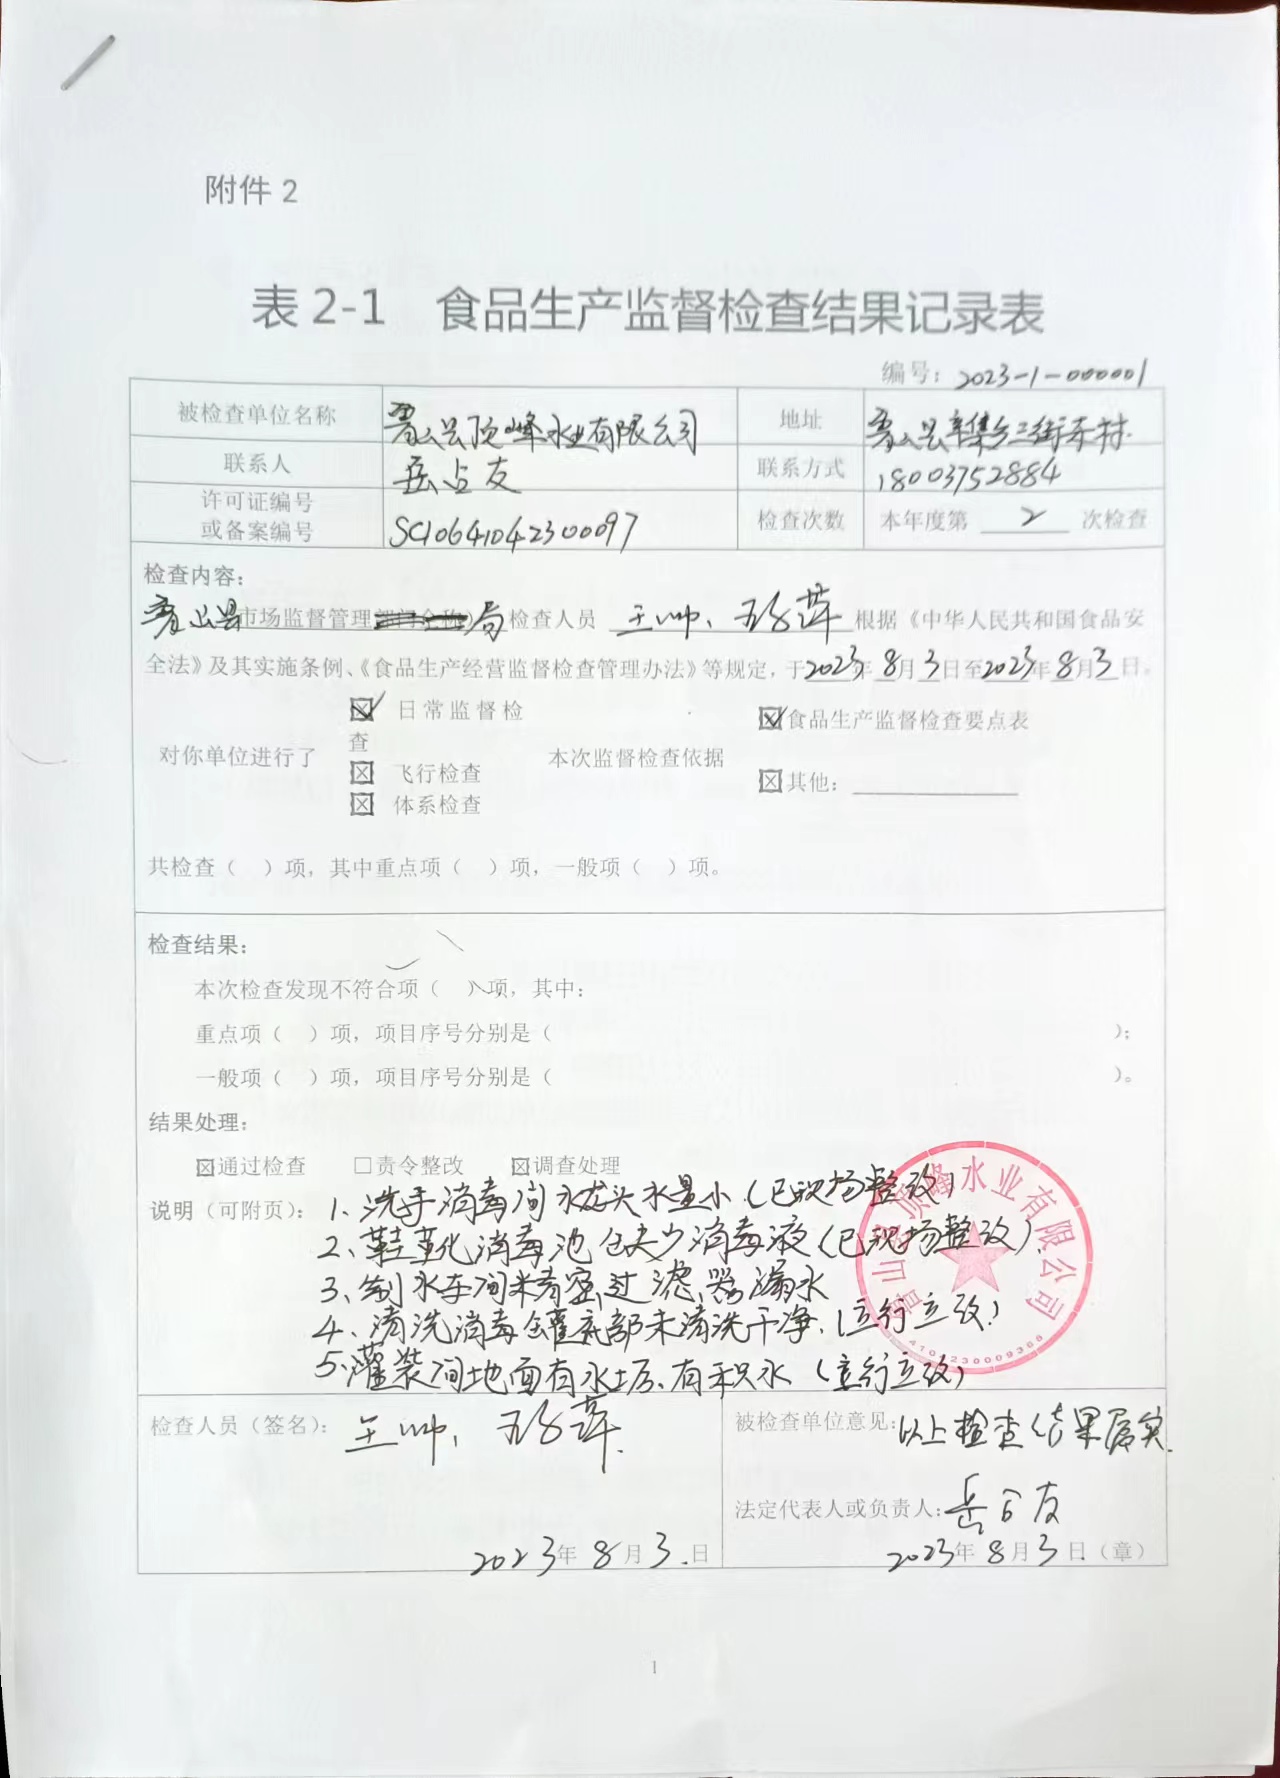 附件 2
表 2-1 食品生产监督检查结果记录表
编号：2023-1-000001
被检查单位名称 鲁山县顶峰水业有限公司 地址 鲁山县辛集乡三街东村
联系人 岳占友 联系方式 18003752884
许可证编号
或备案编号 SC10641042300097 检查次数 本年度第 2 次检查
检查内容：
鲁山县市场监督管理局检查人员 王帅、 根据《中华人民共和国食品安
全法》及其实施条例、《食品生产经营监督检查管理办法》等规定，于2023年8月3日至2023年8月3日。
☒ 日常监督检
查
☒食品生产监督检查要点表
对你单位进行了 本次监督检查依据
☒ 飞行检查
☒其他：
☒ 体系检查
共检查（ ）项，其中重点项（ ）项，一般项（ ）项。
检查结果：
本次检查发现不符合项（ ）项，其中：
重点项（ ）项，项目序号分别是（ ）；
一般项（ ）项，项目序号分别是（ ）。
结果处理：
☒通过检查 □责令整改 ☒调查处理
说明（可附页）：1、洗手消毒间水龙头水量小（已现场整改）
2、鞋靴消毒池缺少消毒液（已现场整改）
3、制水车间精密过滤器漏水
4、清洗消毒罐底部未清洗干净（立行立改）
5、灌装间地面有水垢、有积水（立行立改）
鲁山县顶峰水业有限公司
检查人员（签名）：王帅、
被检查单位意见：以上检查结果属实
法定代表人或负责人：岳占友
2023年8月3日 2023年8月3日（章）
1